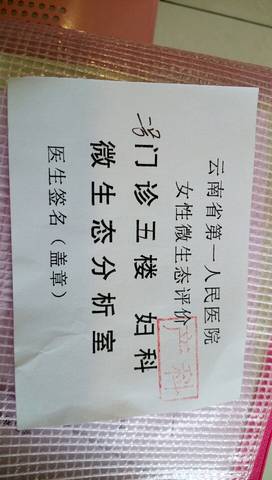 云南省第一人民医院
女性微生态评价
产科
一号门诊五楼 妇科
微生态分析室
医生签名（盖章）